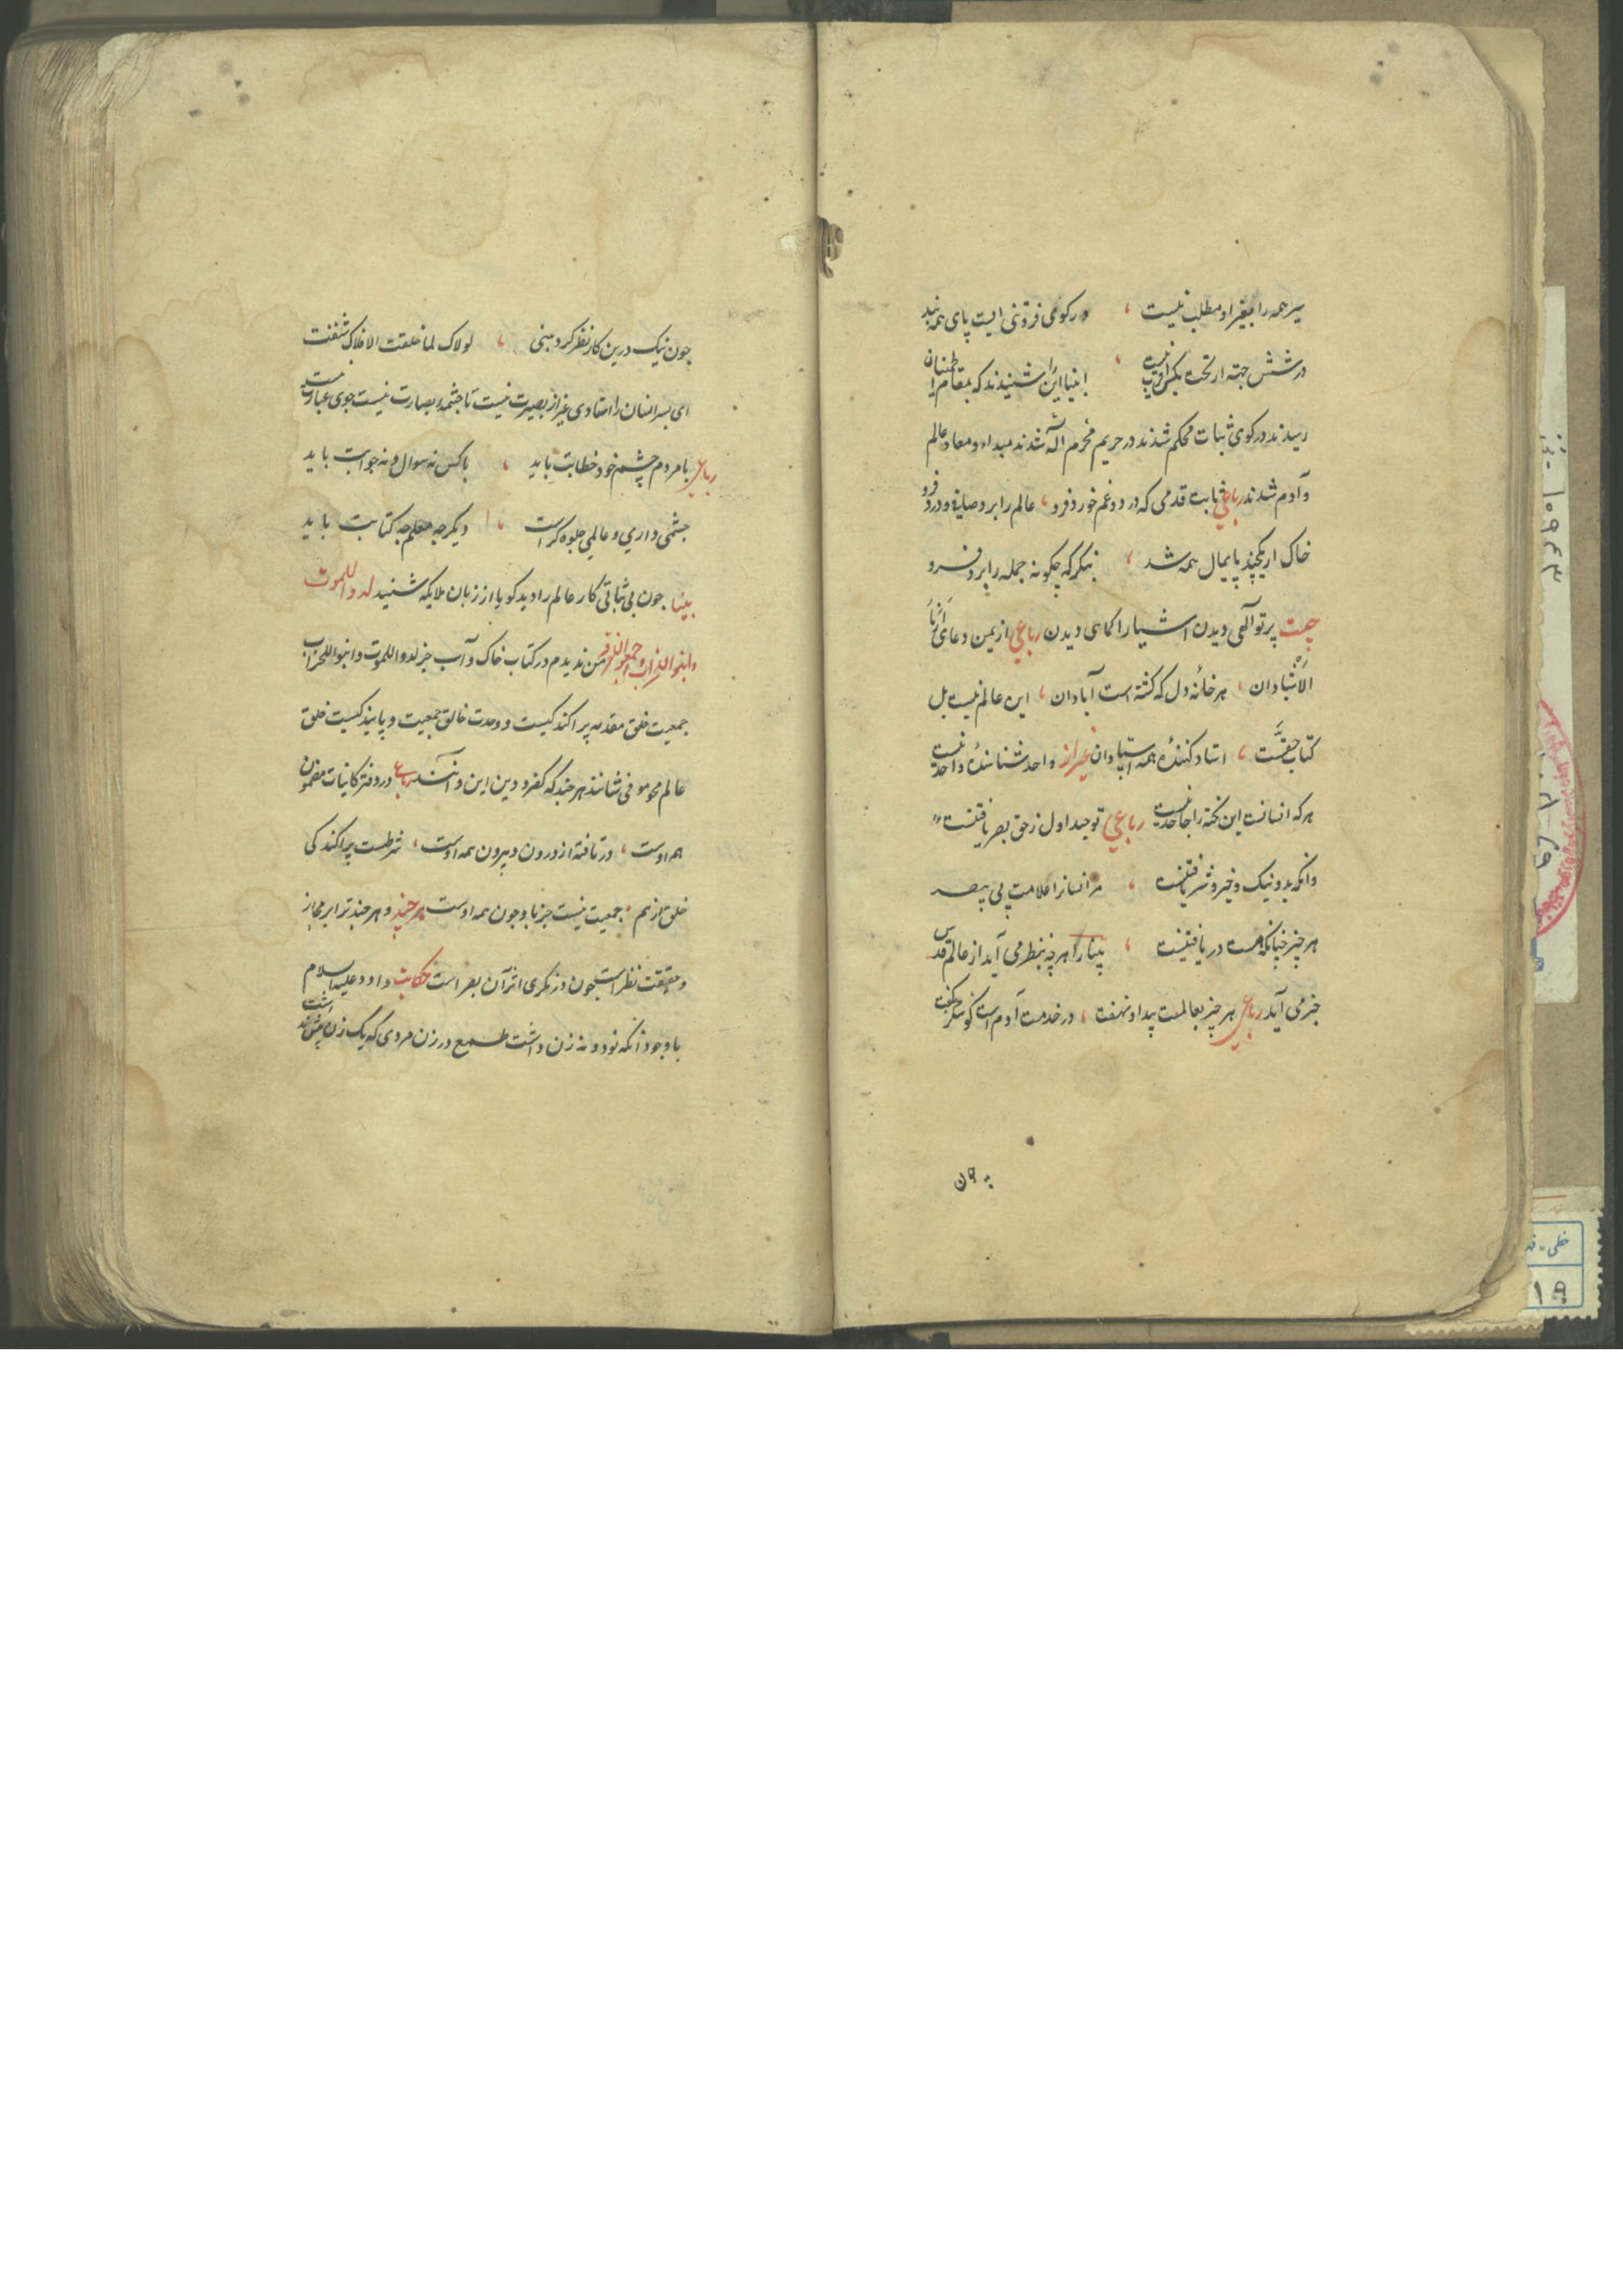 سیر همه را بغیر او مطلب نیست ، در کوی فروتنی است پای همه بند
در شش جهة ار تحت بکس اقرب نیست ، انبیا این را شنیدند که بمقام اطمینان
رسیدند در کوی ثبات محکم شدند در حریم محرم اله شدند مبداء و معاد عالم
و آدم شدند رباعی ثابت قدمی که درد و غم خورد فرو ، عالم را برد صاف و درد فرو
خاک ار یکچند پایمال همه شد ، بنگر که چگونه جمله را برد فرو
چیست پرتو آلهی دیدن اشیا را کماهی دیدن رباعی از یمن دعای ارنا
الاشیا دان ، هر خانهٔ دل که گشته است آبادان ، این عالم نیست بل
کتاب حقیست ، استاد کنندهٔ همه استادان غیر از واحد شناسندهٔ واحد نیست
هر که انسانست این نکته را جاحد نیست رباعی توحید اول ز حق بصر یافتنست
وانکه بد و نیک و خیر و شر یافتنست ، مر انسانرا علامت پی ببصر
هر چیز چنانکه هست در یافتنست ، بینا را هر چه بنظر می آید از عالم قدس
خبر می آید رباعی هر چیز بعالمست پیدا و نهفت ، در خدمت آدم است کو شکر نگفت
چون نیک درین کار نظر کرد مبنی ، لولاک لما خلقت الافلاک شنفت
ای بسر انسان را استادی غیر از بصیرت نیست تا چشمهٔ بصارت نیست جوی عبارت نیست
رباعی با مردم چشم خود خطابت باید ، با کس نه سوال و نه جوابت باید
چشمی داری و عالمی جلوه کراست ، دیکر چه معلم چه کتابت باید
بینا جون بی ثباتی کار عالم را دید کویا از زبان ملایکه شنید لدوا للموت
وابنوا للخراب و جمعوا للفرقه من ندیدم در کتاب خاک و آب جز لدوا للموت وابنوا للخراب
جمعیت خلق مقدمه پراکندکیست و وحدت خالق جمعیت و پایندکیست خلق
عالم محو موفی شانند هر چند که کفر و دین این و آنند رباعی در دفتر کاینات مضمون
هم اوست ، در تافته از درون و بیرون همه اوست ، شرطست پراکندکی
خلق از هم ، جمعیت نیست جز با و جون همه اوست هر چند و هر چند ترا بر مجاز
و حقیقت نظر است جون در نکری اثر آن بصر است حکایت داود علیه السلام
با وجود آنکه نود و نه زن داشت طمع در زن مردی که یک زن بیش نداشت
۱۰۹۴۳
خطی
۱۸